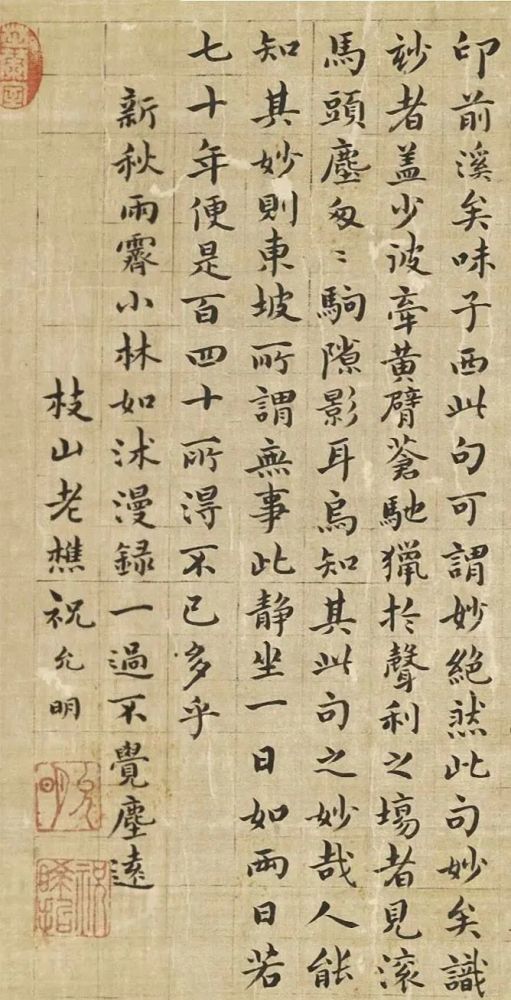 印前溪矣味子西此句可謂妙絕然此句妙矣識
玅者盖少彼牽黃臂蒼馳獵扵聲利之塲者見滚
馬頭塵匆〻駒隙影耳烏知其此句之妙哉人能
知其妙則東坡所謂無事此静坐一日如兩日若
七十年便是百四十所淂不已多乎
新秋雨霽小林如沐漫録一過不覺塵遠
枝山老樵祝允明
允明